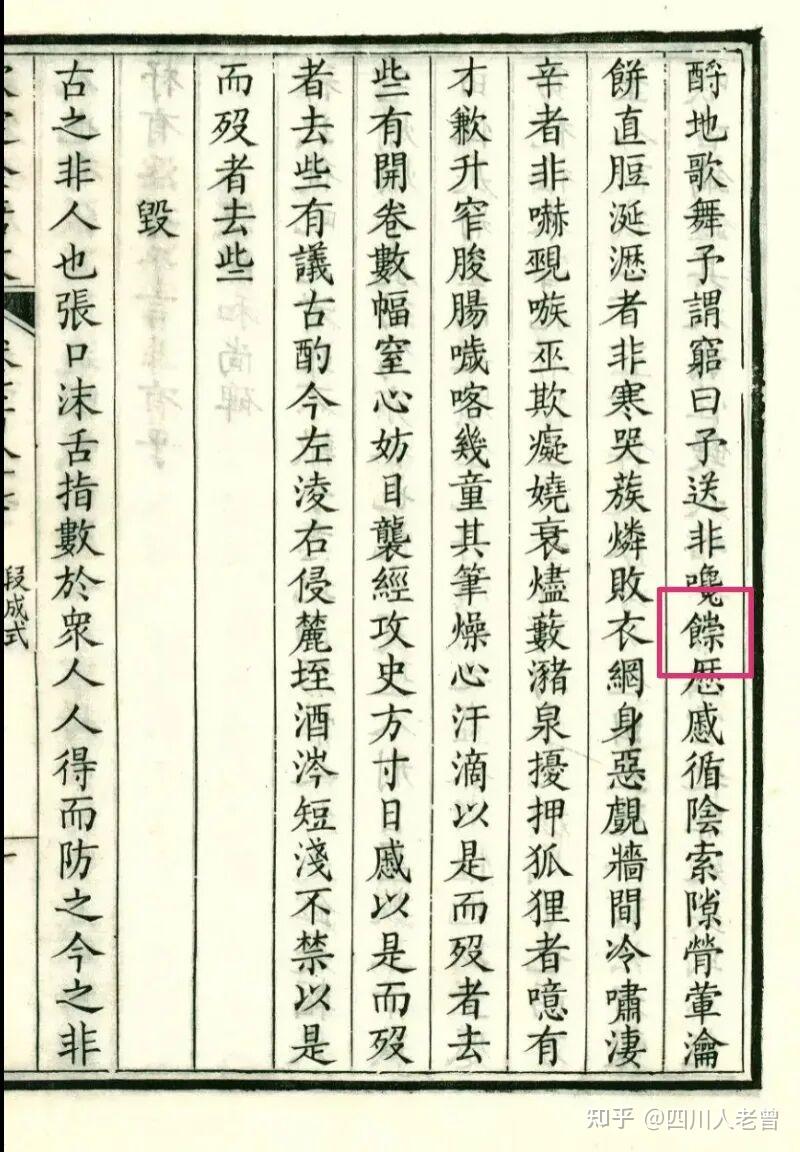 酹地歌舞予謂窮曰予送非嚵餯慼循陰索隙膋葷瀹
餅直脰涎瀝者非寒哭蔟燐敗衣網身惡覷牆間冷嘯淒
辛者非嚇覡嗾巫欺癡嬈衰燼藪瀦泉擾押狐狸者噫有
才歉升窄朘腸噦喀幾童其筆燥心汗滴以是而歿者去
些有開卷數幅窒心妨目襲經攻史方寸日慼以是而歿
者去些有議古酌今左淩右侵麓垤酒涔短淺不禁以是
而歿者去些
毀
古之非人也張口沫舌指數於衆人人得而防之今之非
段成式
知乎 @四川人老曾